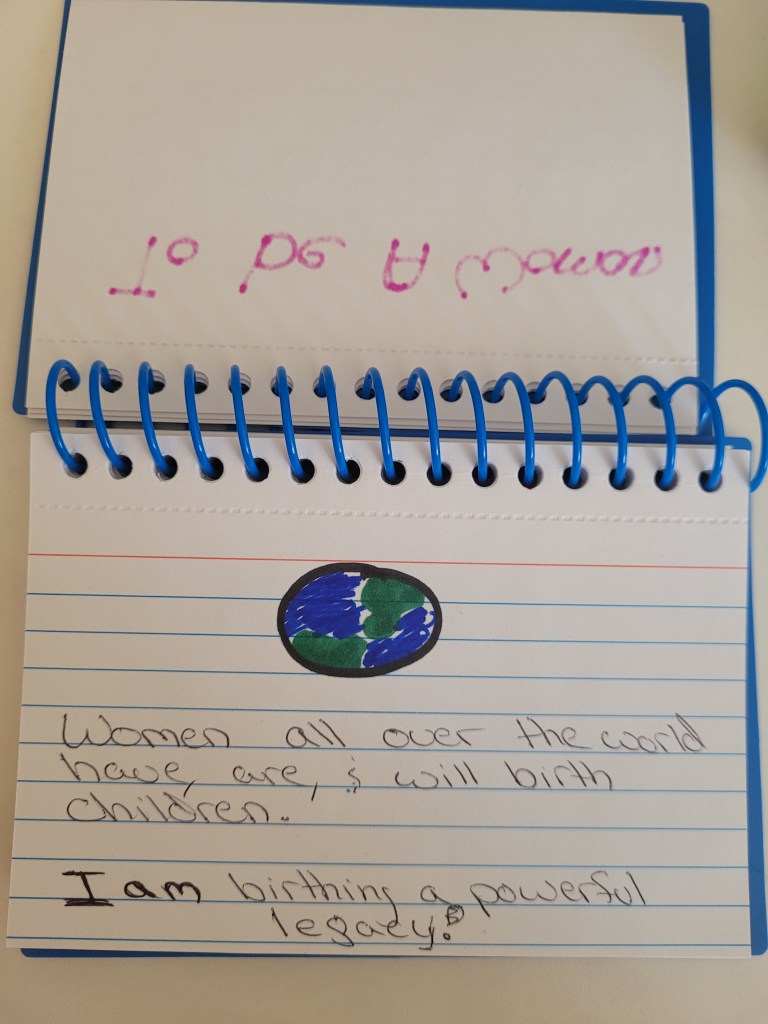 To Be A Woman
Women all over the world
have, are, & will birth
children.
I am birthing a powerful
legacy!